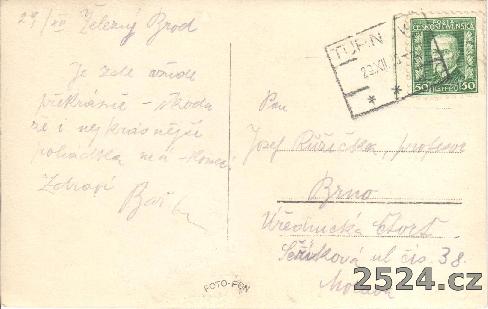 29/XII Železný Brod
Je zde všude
překrásně - škoda
že i nejkrásnější
pohádka má konec
Zdraví
TURNOV
29.XII
POŠTA
ČESKOSLOVENSKÁ
50 50
Pan
Josef Růžička, profesor
Brno
Úřednická čtvrť
ul čís. 38.
Morava
FOTO-FON
2524.cz